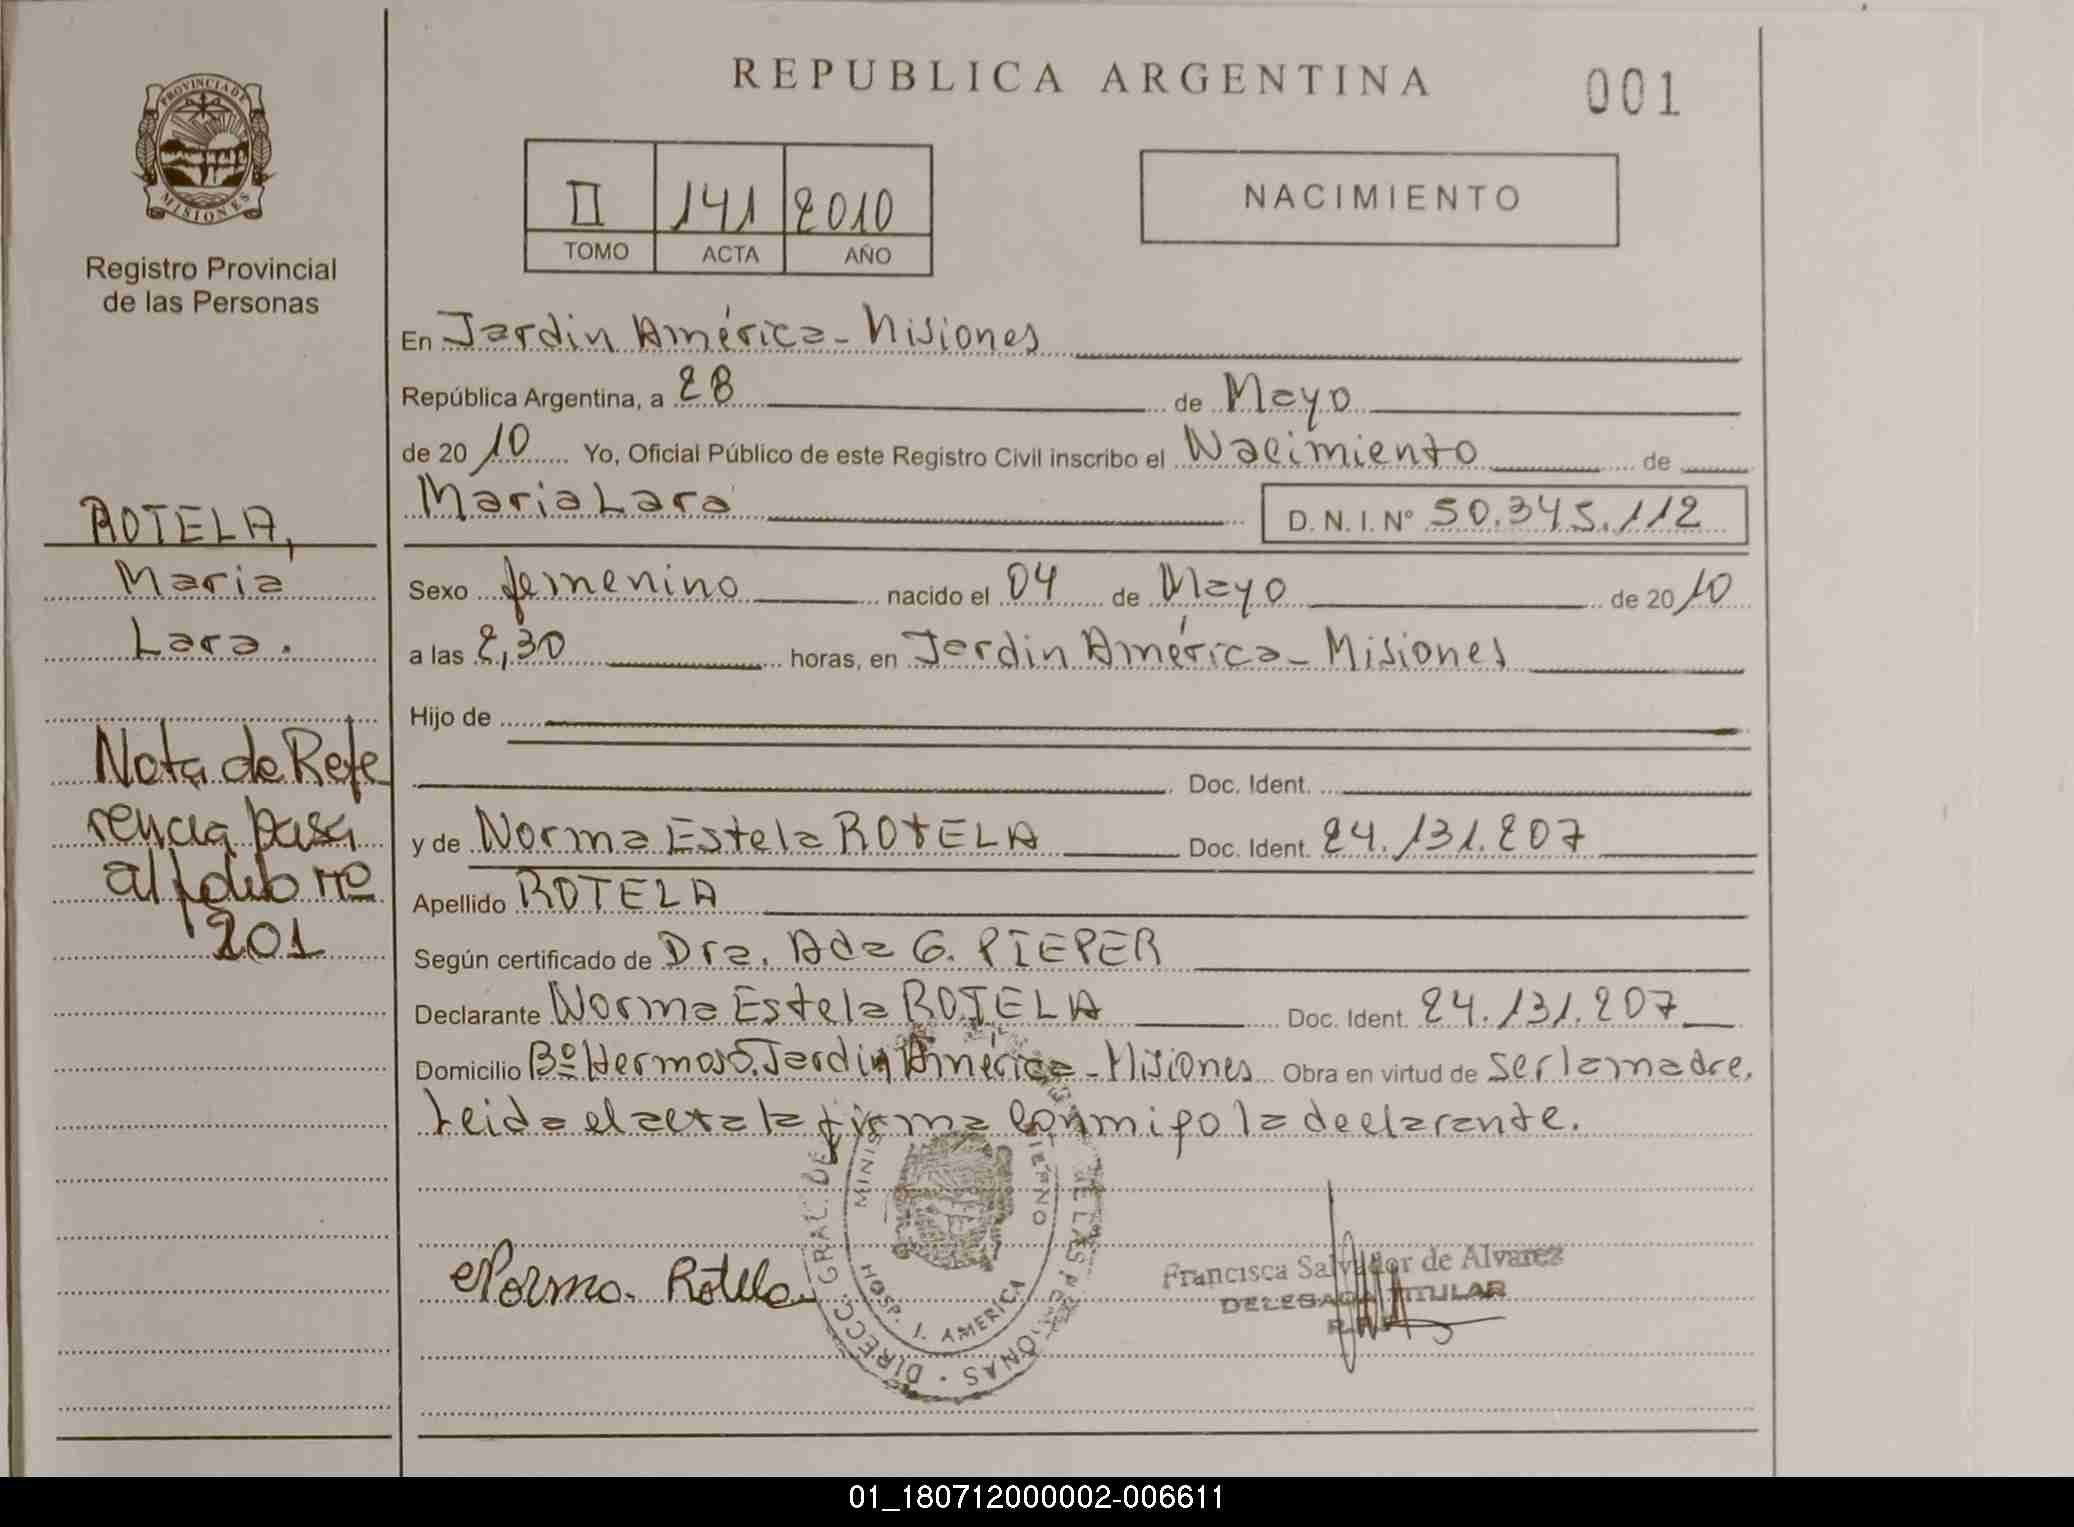 REPUBLICA ARGENTINA
001
PROVINCIA DE
MISIONES
Registro Provincial
de las Personas
II 141 2010
TOMO ACTA AÑO
NACIMIENTO
En Jardin América - Misiones
República Argentina, a 28 de Mayo
de 2010 Yo, Oficial Público de este Registro Civil inscribo el Nacimiento de
Maria Lara D. N. I. Nº 50.345.112
Sexo femenino nacido el 04 de Mayo de 2010
a las 2,30 horas, en Jardin América - Misiones
Hijo de
Doc. Ident.
y de Norma Estela ROTELA Doc. Ident. 24.131.207
Apellido ROTELA
Según certificado de Dra. Ada G. PIEPER
Declarante Norma Estela ROTELA Doc. Ident. 24.131.207
Domicilio Bº Hermoso. Jardin América - Misiones Obra en virtud de ser la madre.
Leida el acta la firma conmigo la declarante.
ROTELA,
Maria
Lara.
Nota de Refe
rencia pasa
al folio nº
201
Norma. Rotela
DIRECC. GRAL. DE LAS PERSONAS
HOSP. J. AMERICA
Francisca Salvador de Alvarez
DELEGADA TITULAR
R.P.P.
01_180712000002-006611